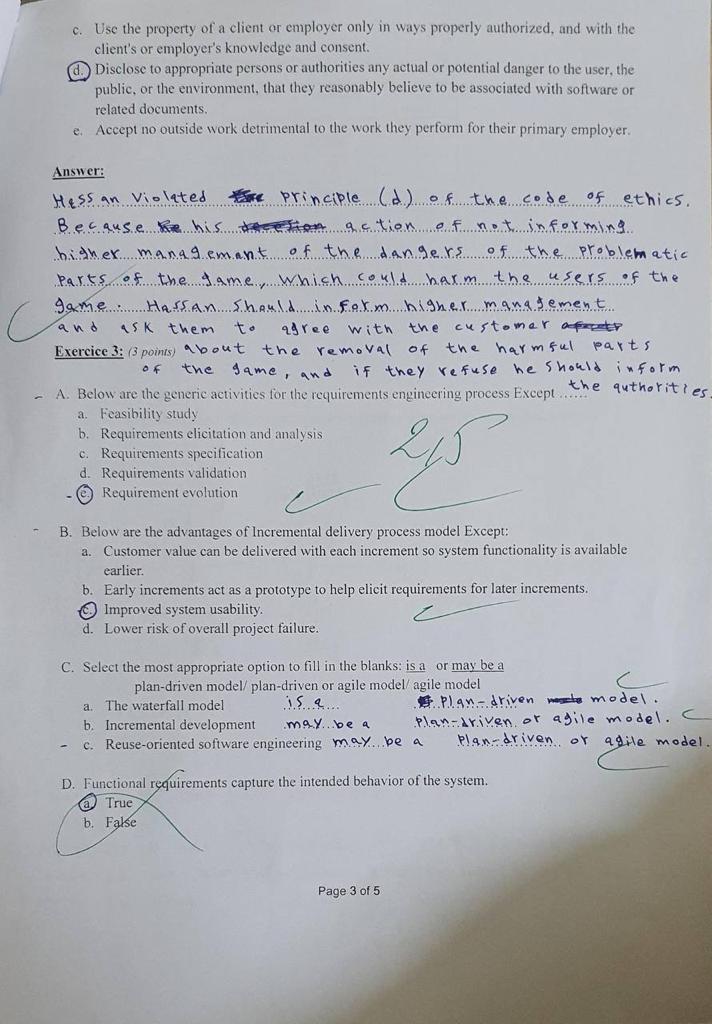 c. Use the property of a client or employer only in ways properly authorized, and with the
client's or employer's knowledge and consent.
d. Disclose to appropriate persons or authorities any actual or potential danger to the user, the
public, or the environment, that they reasonably believe to be associated with software or
related documents.
e. Accept no outside work detrimental to the work they perform for their primary employer.
Answer:
Hessan Violated principle (d) of the code of ethics.
Because his action of not informing
higher managemant of the dangers of the problematic
parts of the game, which could harm the users of the
game. Hassan should inform higher management
and ask them to agree with the customer
about the removal of the harmful parts
Exercice 3: (3 points)
of the game, and if they refuse he should inform
the authorities.
A. Below are the generic activities for the requirements engineering process Except ......
a. Feasibility study
b. Requirements elicitation and analysis
c. Requirements specification
d. Requirements validation
e. Requirement evolution
2,5
B. Below are the advantages of Incremental delivery process model Except:
a. Customer value can be delivered with each increment so system functionality is available
earlier.
b. Early increments act as a prototype to help elicit requirements for later increments.
c. Improved system usability.
d. Lower risk of overall project failure.
C. Select the most appropriate option to fill in the blanks: is a or may be a
plan-driven model/ plan-driven or agile model/ agile model
a. The waterfall model is a plan-driven model.
b. Incremental development may be a plan-driven or agile model.
c. Reuse-oriented software engineering may be a plan-driven or agile model.
D. Functional requirements capture the intended behavior of the system.
a. True
b. False
Page 3 of 5